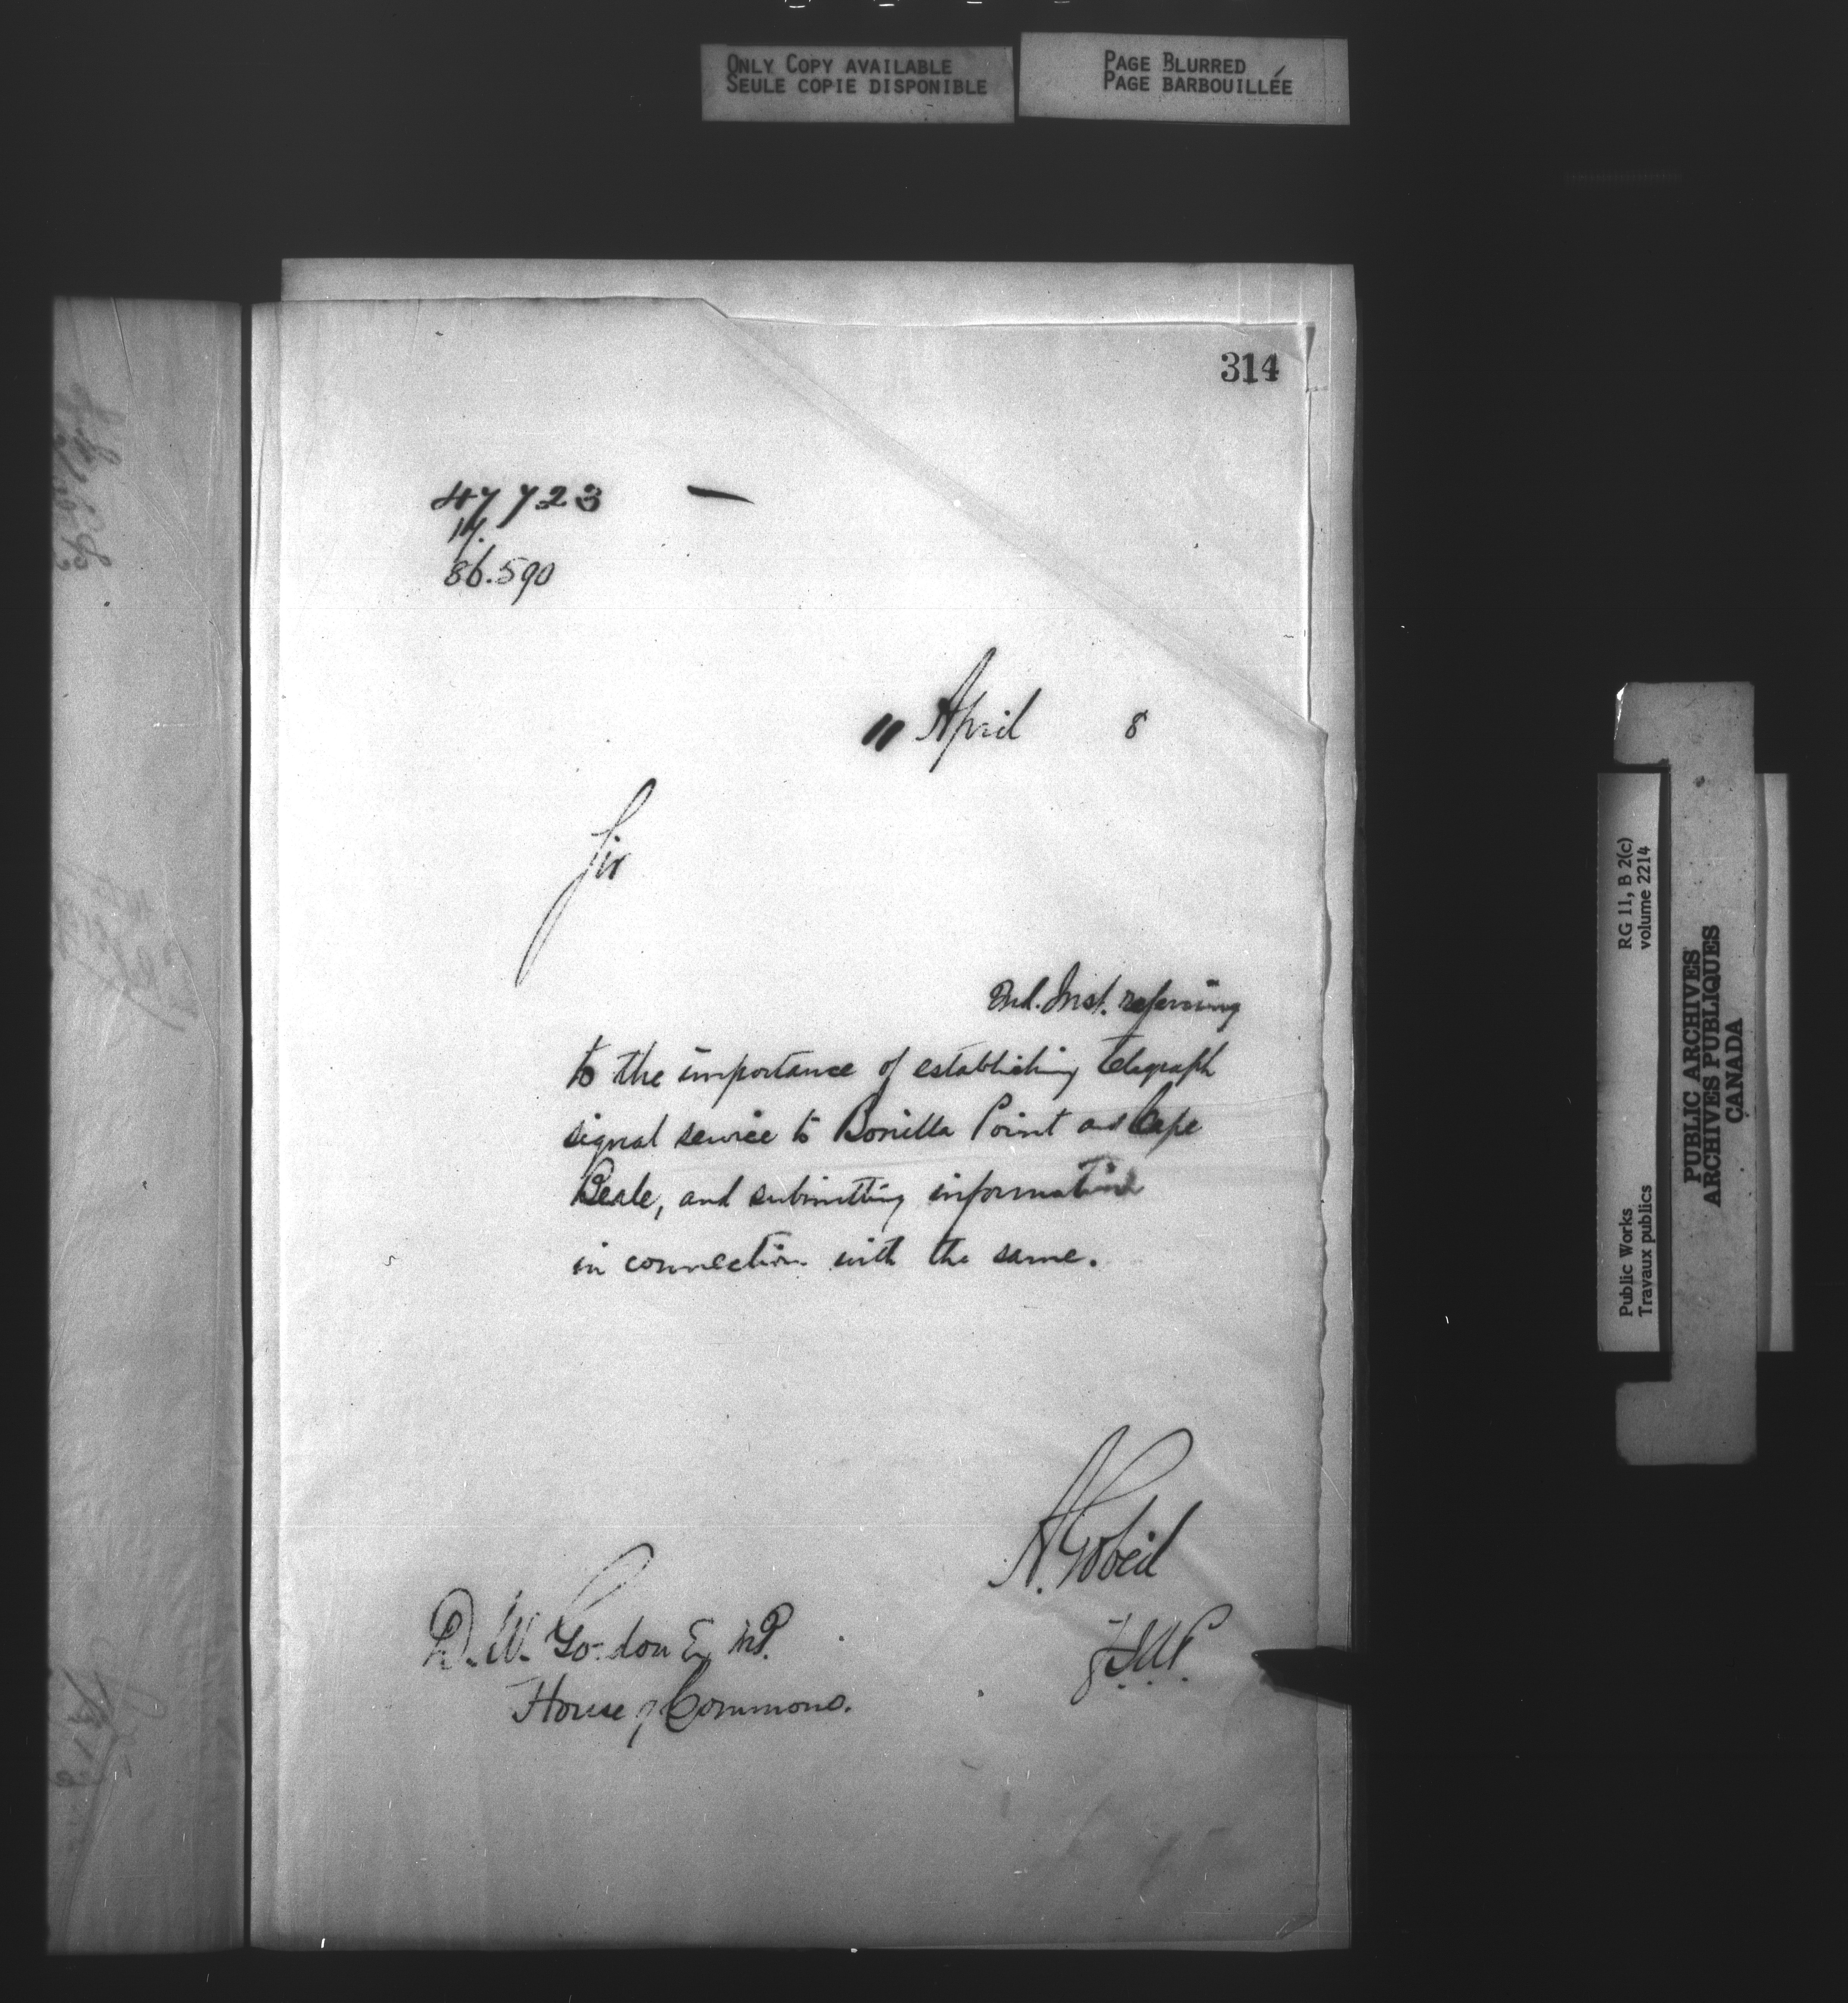 ONLY COPY AVAILABLE
SEULE COPIE DISPONIBLE
PAGE BLURRED
PAGE BARBOUILLÉE
314
47723
14.
86.590
11 April 8
Sir
2nd. Inst. referring
to the importance of establishing telegraph
signal service to Bonilla Point and Cape
Beale, and submitting information
in connection with the same.
A. Gobeil
D. W. Gordon Esq M.P.
House of Commons.
RG 11, B 2(c)
volume 2214
Public Works
Travaux publics
PUBLIC ARCHIVES
ARCHIVES PUBLIQUES
CANADA